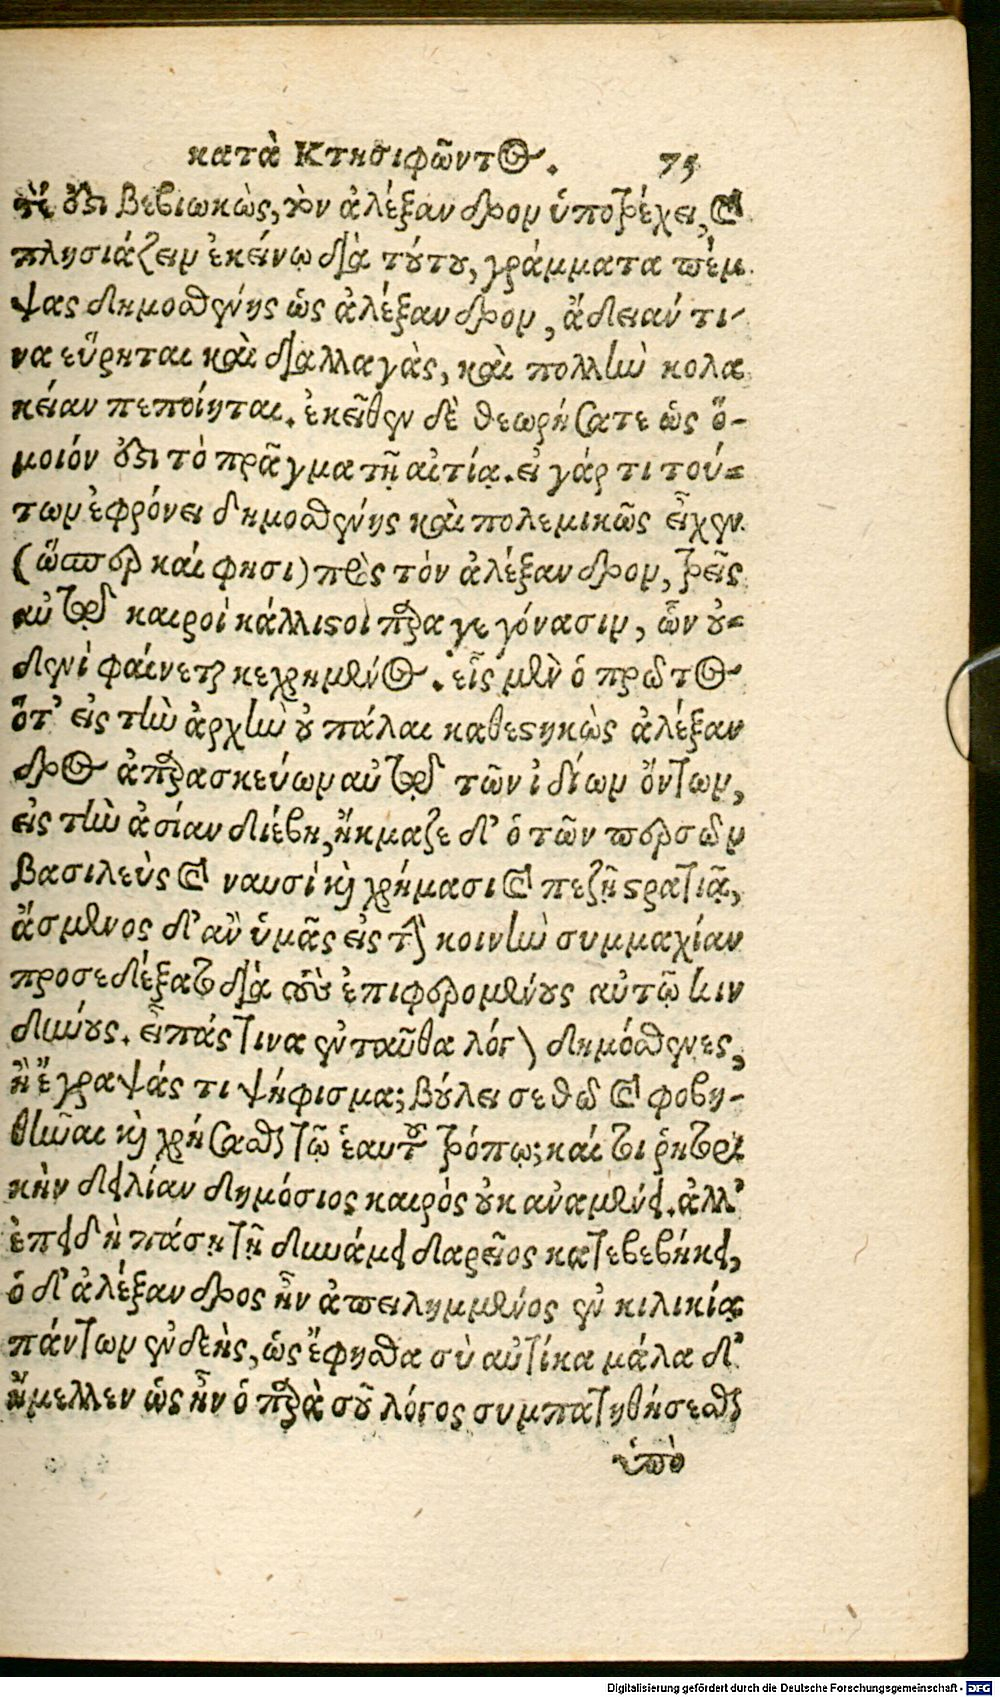 κατὰ Κτησιφῶντος. 75
τέ ὅτι βεβιωκὼς, τὸν ἀλέξανδρον ὑποτρέχει, καὶ
πλησιάζειν ἐκείνῳ διὰ τούτου, γράμματα πέμ
ψας δημοσθένης ὡς ἀλέξανδρον, ἄδειαν τι-
να εὕρηται καὶ διαλλαγὰς, καὶ πολλὴν κολα
κείαν πεποίηται. ἐκεῖθεν δὲ θεωρήσατε ὡς ὅ-
μοιόν ὅτι τὸ πρᾶγμα τῇ αἰτίᾳ. εἰ γάρ τι τού-
των ἐφρόνει δημοσθένης καὶ πολεμικῶς εἶχεν
(ὥσπερ καί φησι) πρὸς τὸν ἀλέξανδρον, τρεῖς
αὐτῷ καιροὶ κάλλιστοι παραγεγόνασιν, ὧν οὐ-
δενὶ φαίνεται κεχρημένος. εἷς μὲν ὁ πρῶτος
ὅτ' εἰς τὴν ἀρχὴν οὐ πάλαι καθεστηκὼς ἀλέξαν
δρος ἀπαρασκεύων αὐτῷ τῶν ἰδίων ὄντων,
εἰς τὴν ἀσίαν διέβη, ἤκμαζε δ' ὁ τῶν περσῶν
βασιλεὺς καὶ ναυσὶ καὶ χρήμασι καὶ πεζῇ στρατιᾷ,
ἄσμενος δ' ἂν ὑμᾶς εἰς τὴν κοινὴν συμμαχίαν
προσεδέξατο διὰ τοὺς ἐπιφερομένους αὐτῷ κιν
δύνους. εἶπάς τινα ἐνταῦθα λόγον δημόσθενες,
ἢ ἔγραψάς τι ψήφισμα; βούλει σε θῶ καὶ φοβη-
θῆναι καὶ χρήσασθαι τῷ ἑαυτοῦ τρόπῳ; καίτοι ῥητορι
κὴν δειλίαν δημόσιος καιρὸς οὐκ ἀναμένει. ἀλλ'
ἐπειδὴ πάσῃ τῇ δυνάμει δαρεῖος κατεβεβήκει,
ὁ δ' ἀλέξανδρος ἦν ἀπειλημμένος ἐν κιλικίᾳ
πάντων ἐνδεὴς, ὡς ἔφησθα σὺ αὐτίκα μάλα δ'
ἤμελλεν ὡς ἦν ὁ παρὰ σοῦ λόγος συμπατηθήσεσθαι
ὑπὸ
Digitalisierung gefördert durch die Deutsche Forschungsgemeinschaft - DFG